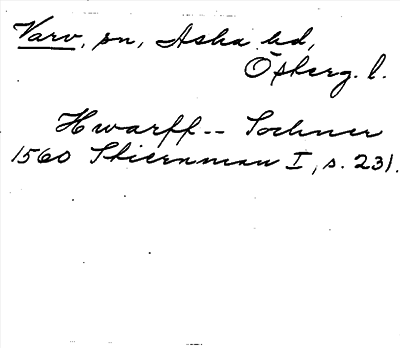 Varv, sn, Aska hd,
Östergl.
Hwarff -- Sochner
1560 Stiernman I, s. 231.